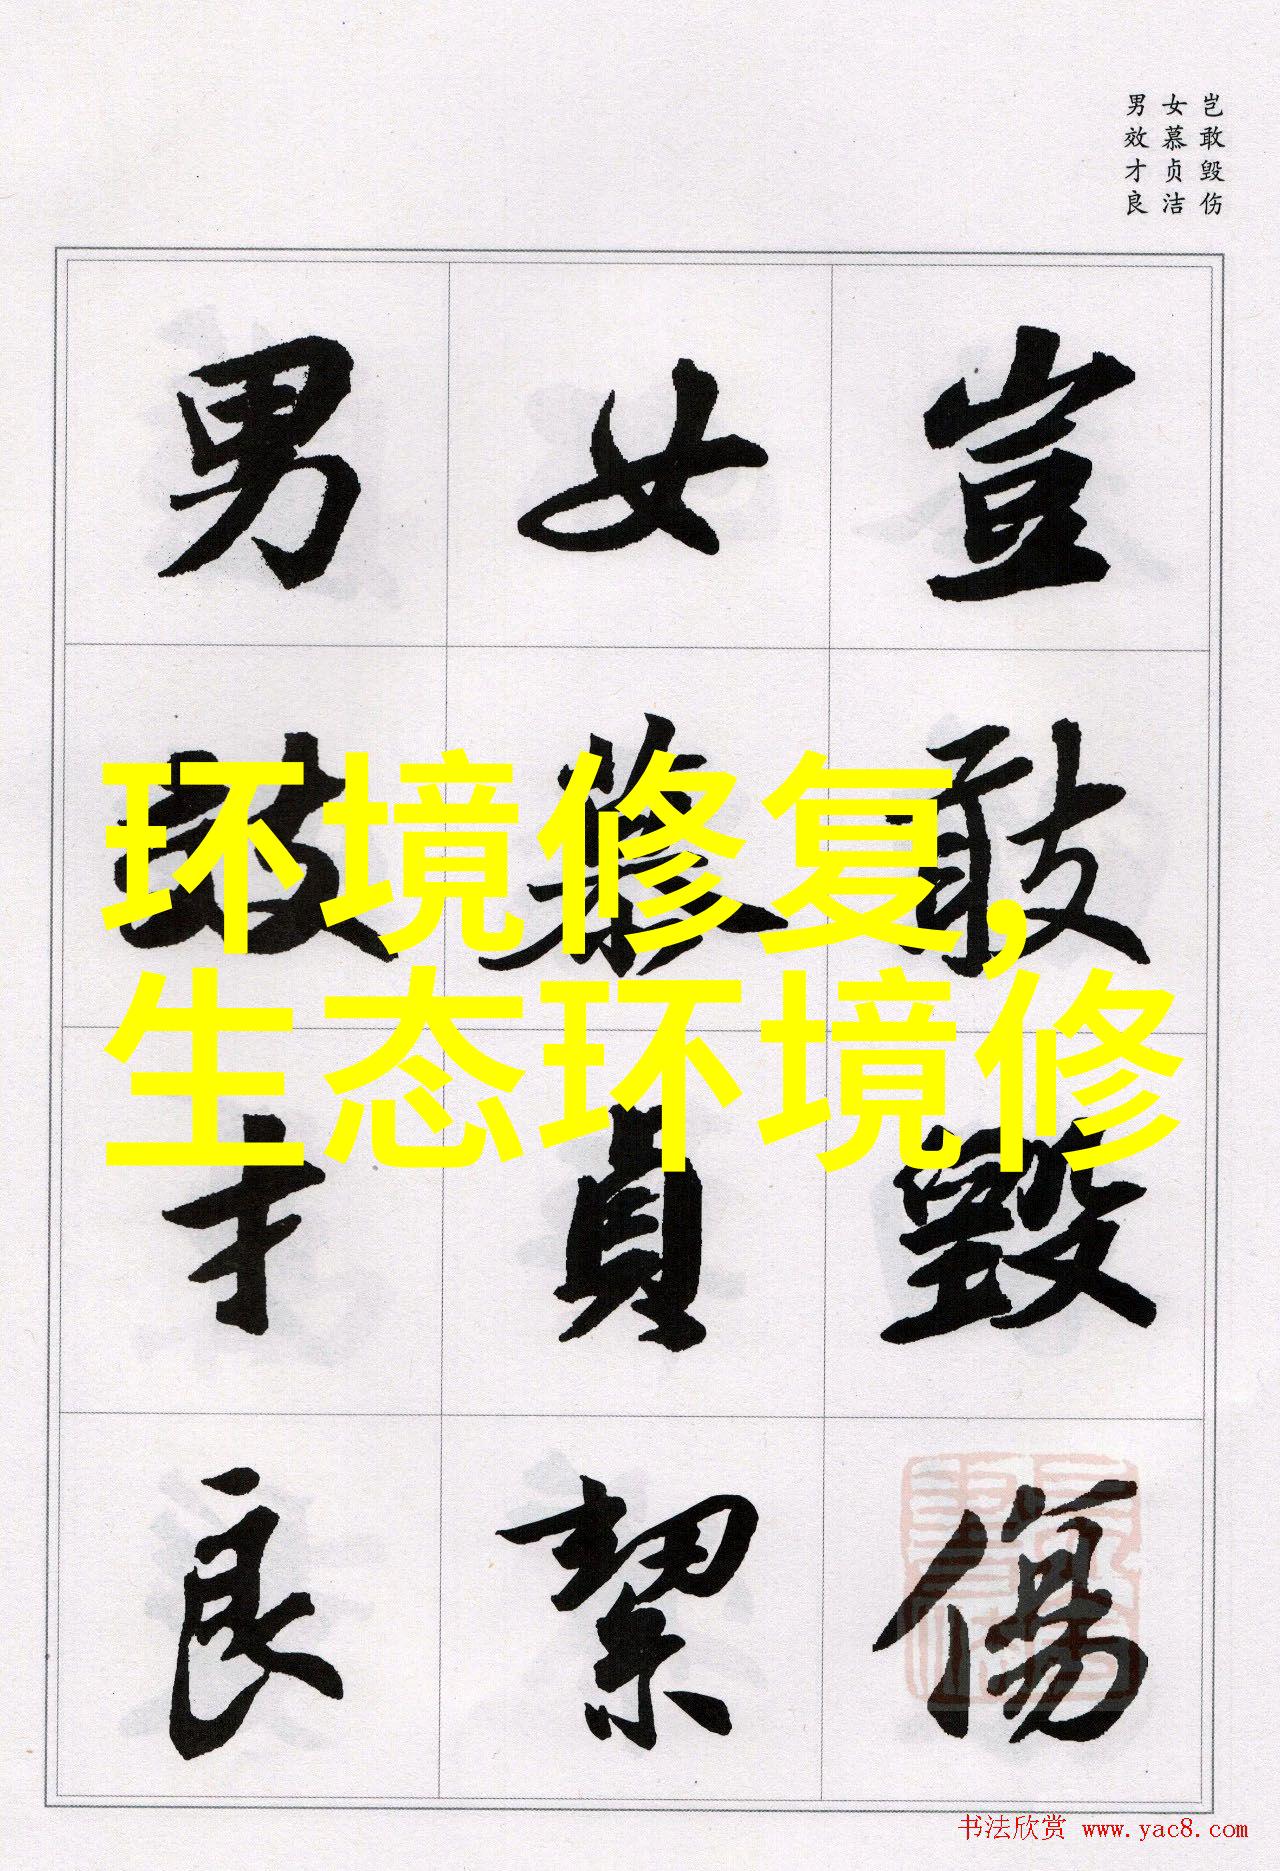 岂敢毁伤
女慕贞洁
男效才良
豈敢毀傷
女慕貞絜
男效才良
环境修复,
生态环境修
书法欣赏 www.yac8.com